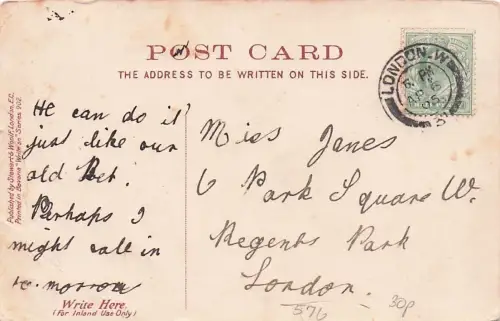 POST CARD
THE ADDRESS TO BE WRITTEN ON THIS SIDE.
LONDON. W
He can do it
just like our
old Pet!
Perhaps I
might call in
to-morrow
Write Here.
(For Inland Use Only)
Published by Stewart & Woolf, London, E.C.
Printed in Bavaria "Write on" Series 902.
Miss Janes
6 Park Square W.
Regents Park
London.
576
30p